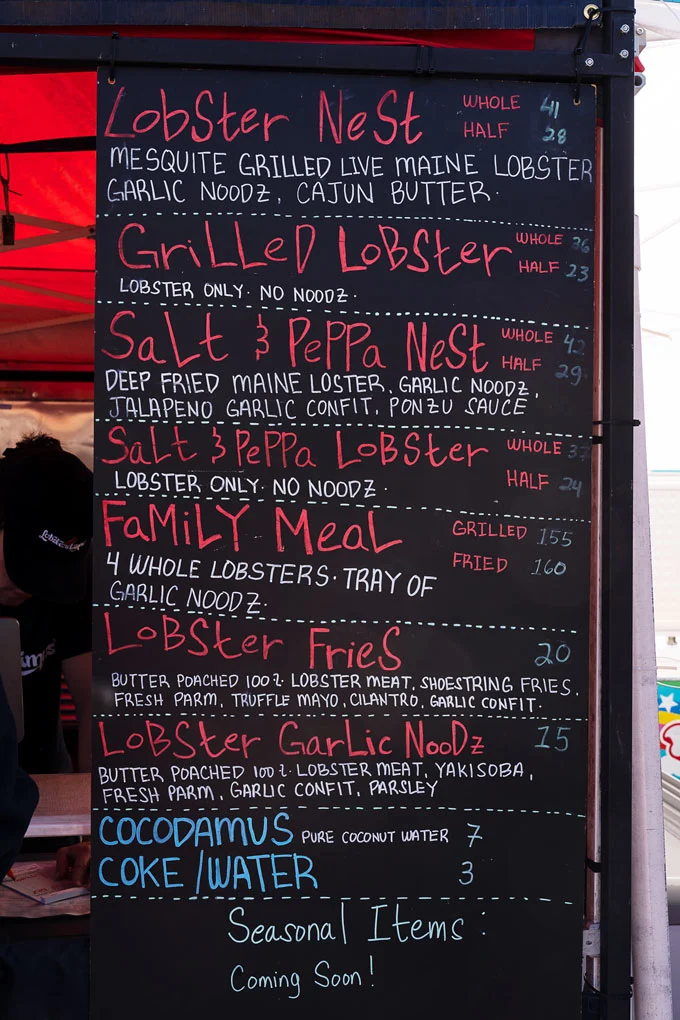 LobSter NeSt WHOLE 41
HALF 28
MESQUITE GRILLED LIVE MAINE LOBSTER
GARLIC NOODZ, CAJUN BUTTER.
GriLLeD LoBSter WHOLE 36
HALF 23
LOBSTER ONLY. NO NOODZ.
SaLt & PePPa NeSt WHOLE 42
HALF 29
DEEP FRIED MAINE LOSTER, GARLIC NOODZ,
JALAPENO GARLIC CONFIT, PONZU SAUCE
SaLt & PePPa LoBSter WHOLE 37
HALF 24
LOBSTER ONLY. NO NOODZ.
FaMiLY MeaL GRILLED 155
FRIED 160
4 WHOLE LOBSTERS. TRAY OF
GARLIC NOODZ.
LoBSter FrieS 20
BUTTER POACHED 100% LOBSTER MEAT, SHOESTRING FRIES,
FRESH PARM, TRUFFLE MAYO, CILANTRO, GARLIC CONFIT.
LoBSter GarLic NooDz 15
BUTTER POACHED 100% LOBSTER MEAT, YAKISOBA,
FRESH PARM, GARLIC CONFIT, PARSLEY
COCODAMUS PURE COCONUT WATER 7
COKE/WATER 3
Seasonal Items:
Coming Soon!